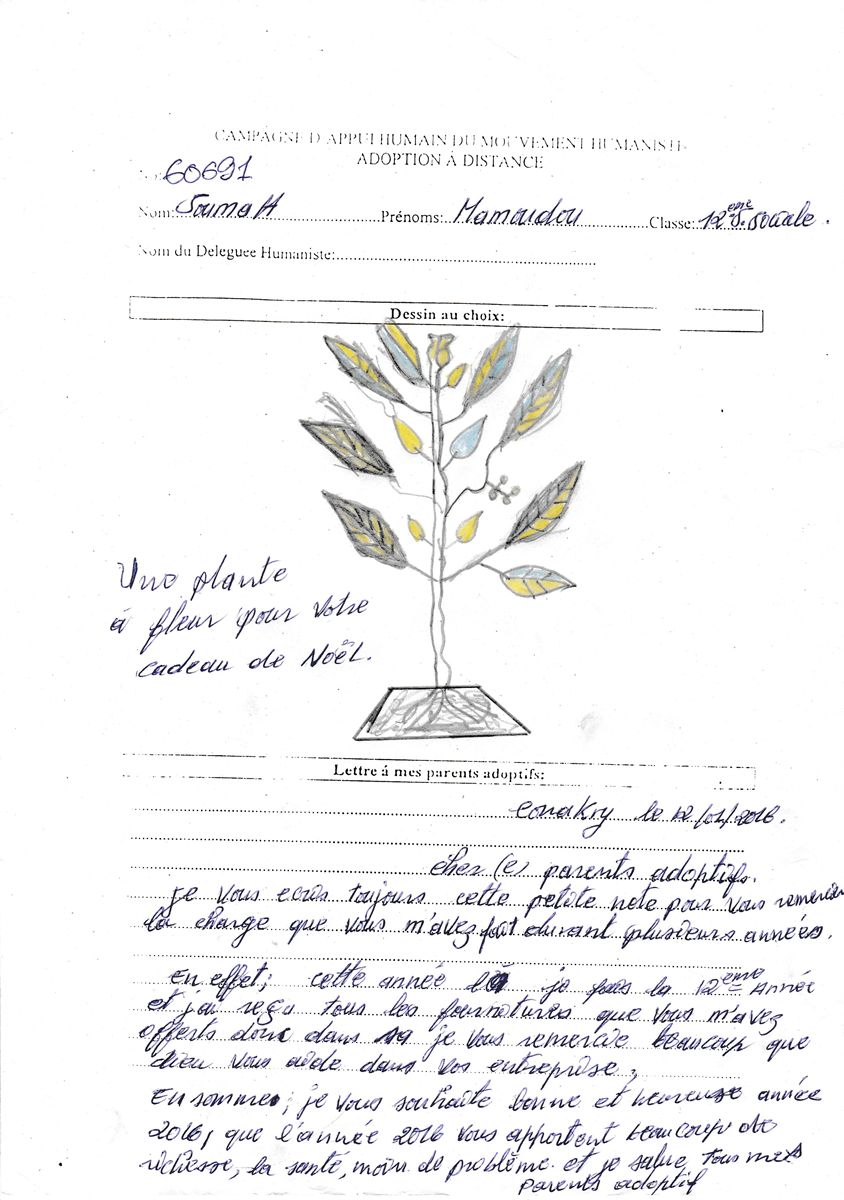 CAMPAGNE D'APPUI HUMAIN DU MOUVEMENT HUMANISTE
ADOPTION À DISTANCE
60691
Nom: Soumah Prénoms: Mamoudou Classe: 12ème S. Sociale.
Nom du Deleguee Humaniste:
Dessin au choix:
Une plante
à fleur pour votre
cadeau de Noël.
Lettre á mes parents adoptifs:
Conakry le 12/01/2016.
cher (e) parents adoptifs.
je vous ecris toujours cette petite note pour vous remercier
la charge que vous m'avez fait durant plusieurs années.
En effet; cette année là je fais la 12ème Année
et j'ai reçu tous les fournitures que vous m'avez
offerts donc dans sa je vous remercie beaucoup que
dieu vous aide dans vos entreprise;
En somme; je vous souhaite bonne et heureuse année
2016, que l'année 2016 vous apportent beaucoup de
richesse, la santé, moin de problème et je salue tous mes
parents adoptif